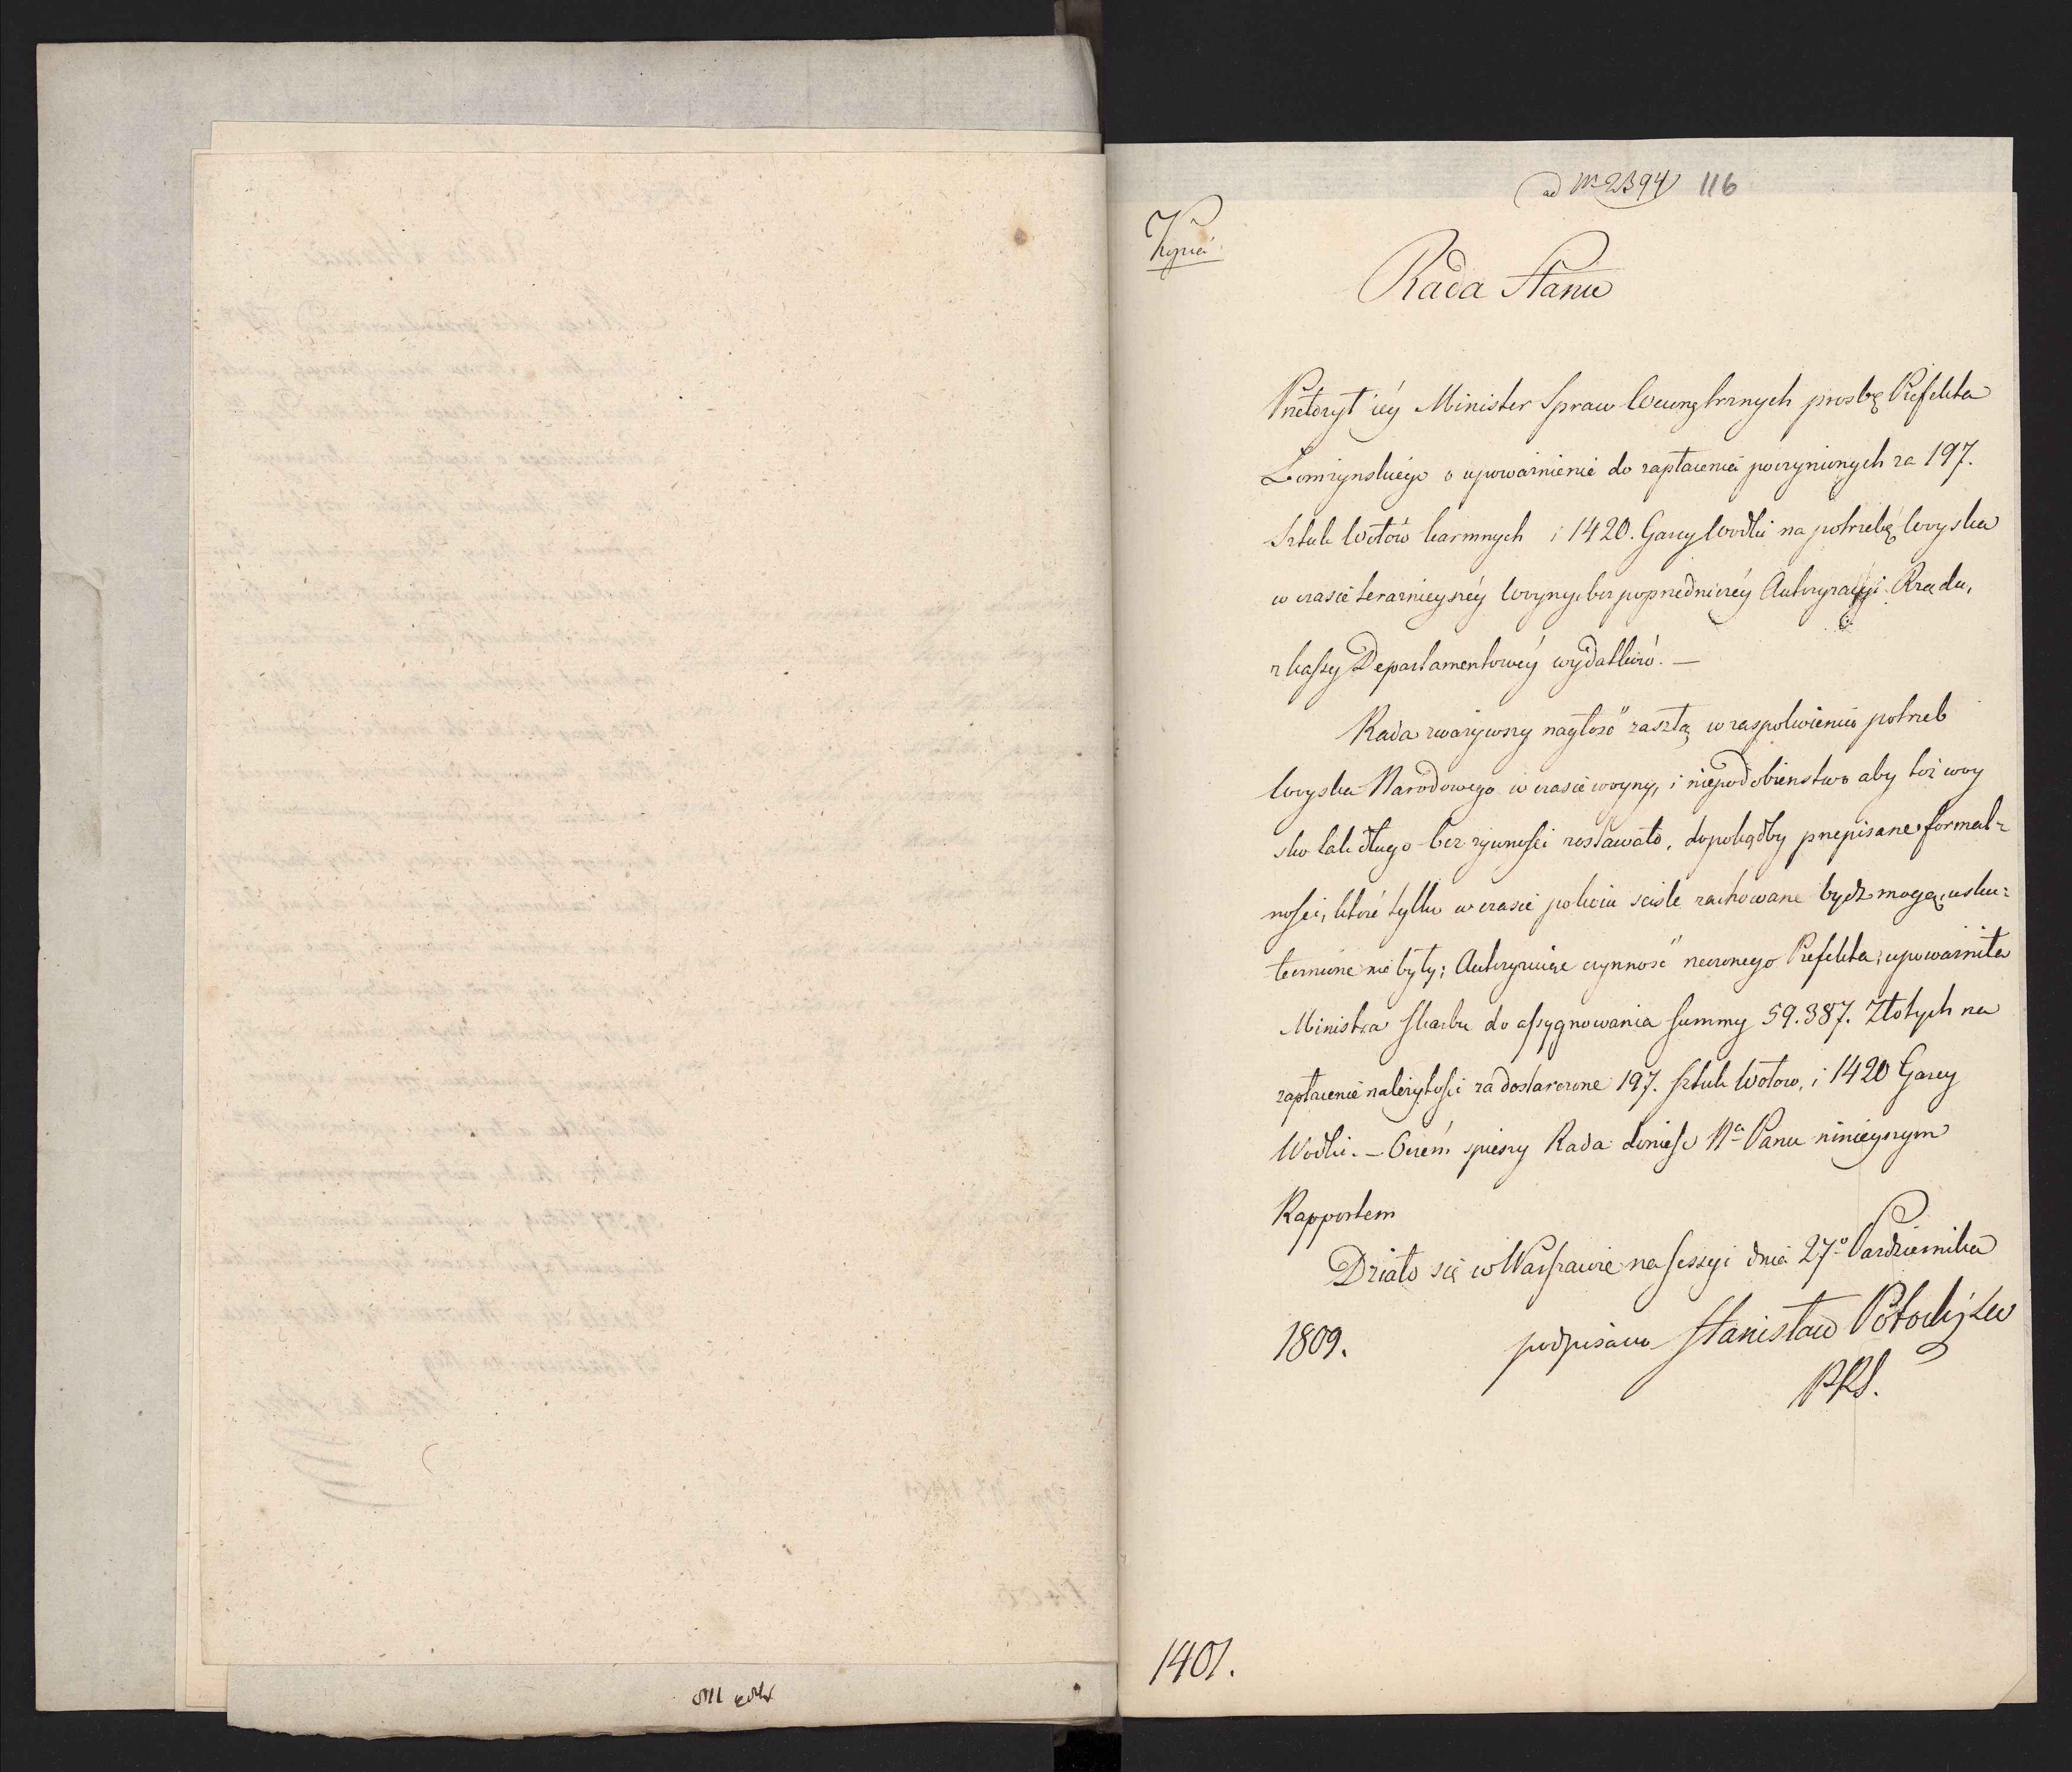 ad Nr 2394 116
Kopia
Rada Stanu
Przełożył iéy Minister Spraw Wewnętrznych prosbę Prefekta
Łomzynskiego o upoważnienie do zapłacenia poczynionych za 197.
Sztuk Wołów karmnych i 1420. Garcy Wodki na potrzebę Woyska
w czasie terazniejszéy Woyny, bez poprzedniczéy Autoryzacyi Rządu,
z kassy Departamentowéy wydatków. —
Rada zwazywszy nagłość zaszłą w zaspokoieniu potrzeb
Woyska Narodowego w czasie woyny, i niepodobienstwo aby toż woy
sko tak długo bez zywnosci zostawało, dopokądby przepisane formal=
nosci, które tylko w czasie pokoiu scisle zachowane bydz mogą, usku=
tecznione nie były; Autoryzuiąc czynność rzeczonego Prefekta, upoważniła
Ministra Skarbu do assygnowania Summy 59.387. Złotych na
zapłacenie należytosci za dostarczone 197. Sztuk Wołow, i 1420 Garcy
Wodki. — Oczém spieszy Rada donieść Na. Panu ninieyszym
Rapportem
Działo się w Warszawie na Sessyi dnia 27o. Pazdziernika
1809. podpisano Stanisław Potocki
PRS.
1401.